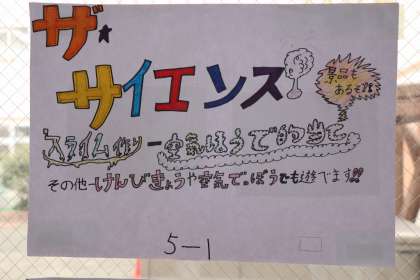 ザ・
サイエンス
景品も
あるぞ!!
スライム作り-空気ほうで的当て
その他-けんびきょうや空気でっぽうでも遊べます!!
5-1